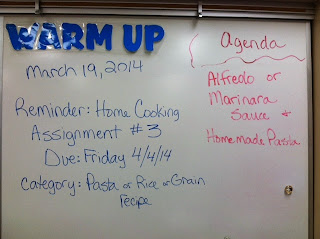 WARM UP
March 19, 2014
Reminder: Home Cooking
Assignment #3
Due: Friday 4/4/14
Category: Pasta or Rice or Grain
recipe
Agenda
Alfredo or
Marinara
Sauce +
Homemade Pasta